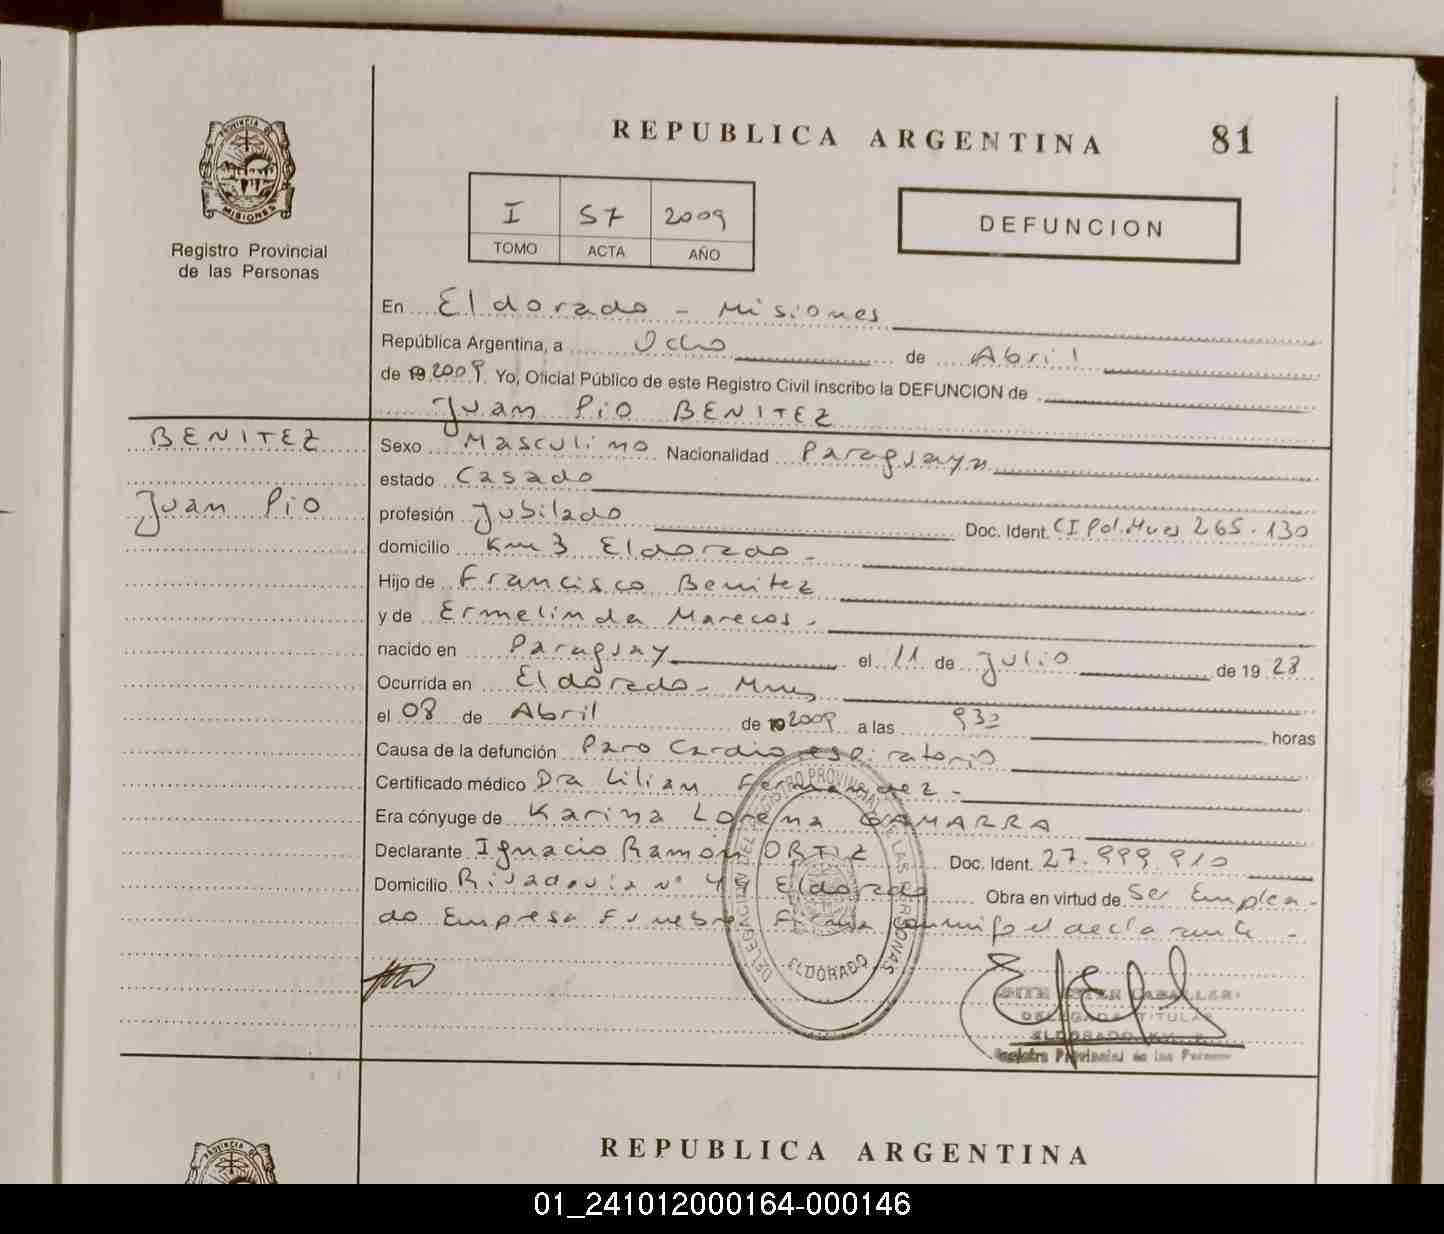 REPUBLICA ARGENTINA 81
PROVINCIA DE
MISIONES
Registro Provincial
de las Personas
I 57 2009
TOMO ACTA AÑO
DEFUNCION
En Eldorado - Misiones
República Argentina, a Ocho de Abril
de 19 2009 Yo, Oficial Público de este Registro Civil inscribo la DEFUNCION de
Juan Pio BENITEZ
BENITEZ
Juan Pio
Sexo Masculino Nacionalidad Paraguaya
estado Casado
profesión Jubilado Doc. Ident. CI Pol. Mnes 265.130
domicilio Km 3 Eldorado -
Hijo de Francisco Benitez
y de Ermelinda Marecos.
nacido en Paraguay el 11 de Julio de 19 28
Ocurrida en Eldorado - Mnes
el 08 de Abril de 19 2009 a las 930 horas
Causa de la defunción Paro Cardiorespiratorio
Certificado médico Dra Lilian Fernandez -
Era cónyuge de Karina Lorena GAMARRA
Declarante Ignacio Ramón ORTIZ Doc. Ident. 27.999.910
Domicilio Rivadavia N° 49 Eldorado Obra en virtud de Ser Emplea-
do Empresa Funebre Firma conmigo el declarante -
DELEGACION DEL REGISTRO PROVINCIAL DE LAS PERSONAS
ELDORADO
ESTER CABALLER
DELEGADA TITULAR
ELDORADO KM.
Registro Provincial de las Personas
REPUBLICA ARGENTINA
PROVINCIA
01_241012000164-000146